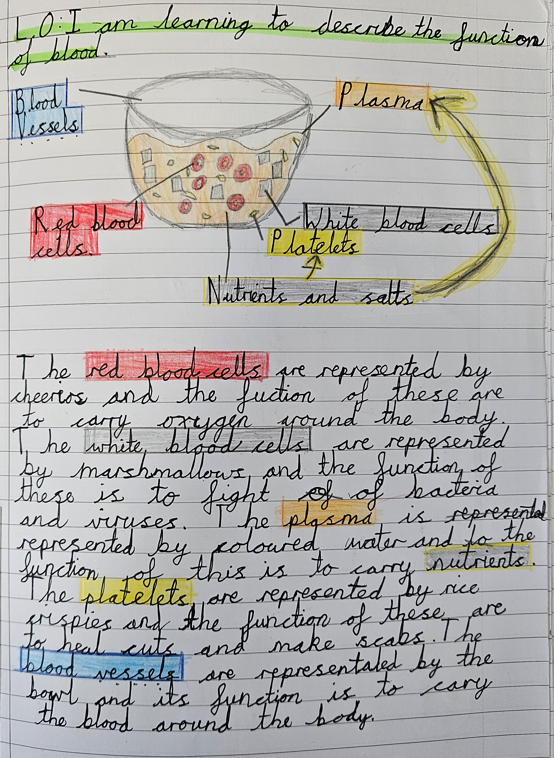 L.O: I am learning to describe the function
of blood.
Blood
Vessels
Plasma
Red blood
cells.
White blood cells
Platelets
Nutrients and salts
The red blood cells are represented by
cheerios and the fuction of these are
to carry oxygen around the body.
The white blood cells are represented
by marshmallows and the function of
these is to fight of of bacteria
and viruses. The plasma is represented
represented by coloured water and to the
function of this is to carry nutrients.
The platelets are represented by rice
crispies and the function of these are
to heal cuts and make scabs. The
blood vessels are representated by the
bowl and its function is to cary
the blood around the body.